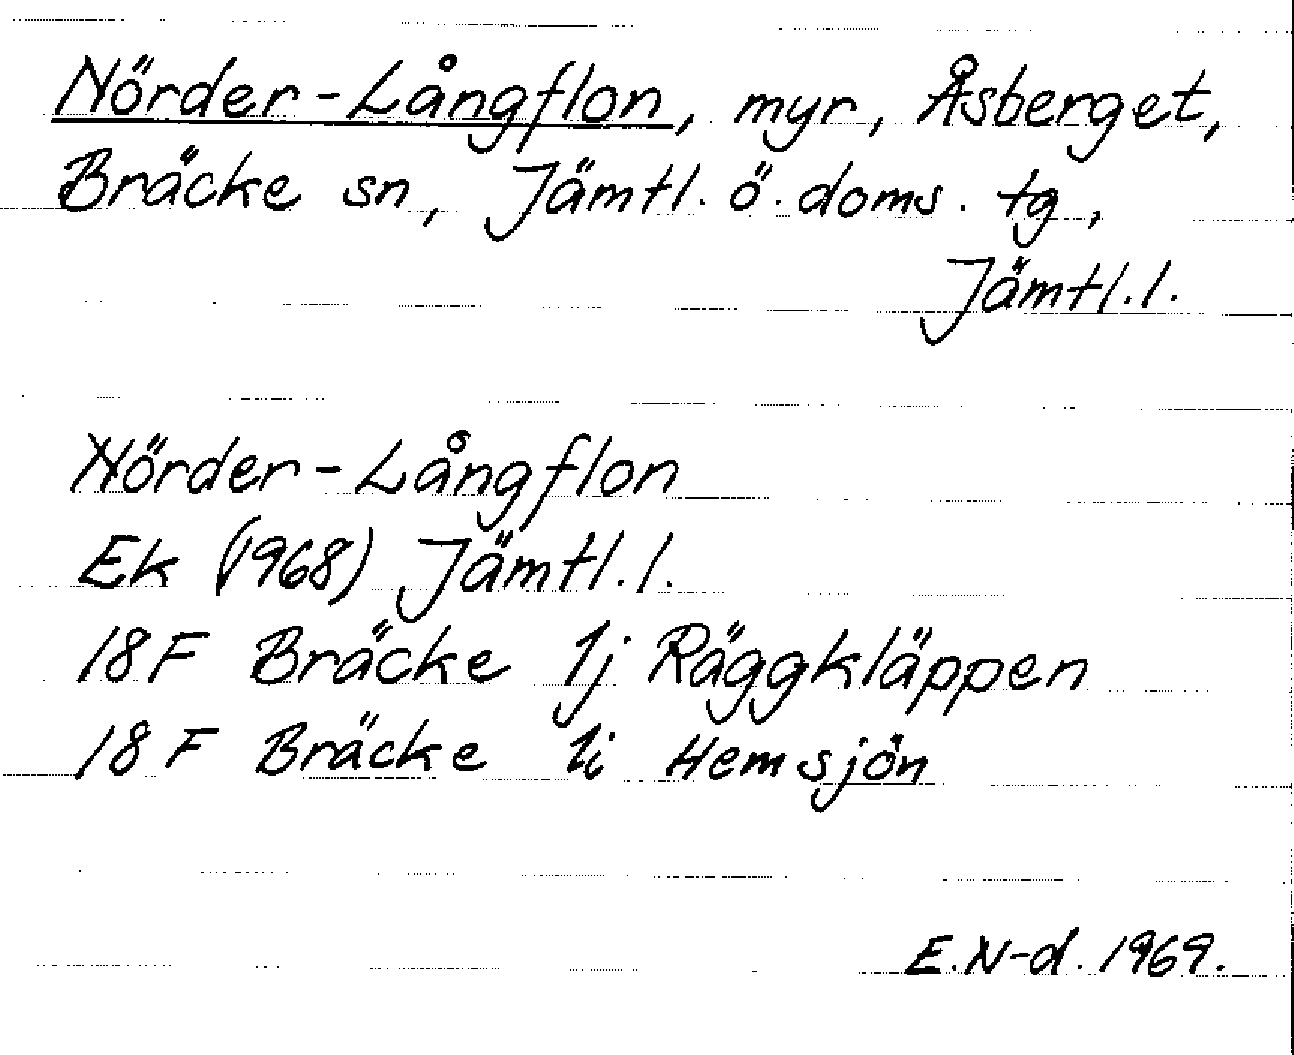 Nörder-Långflon, myr, Åsberget,
Bräcke sn, Jämtl. ö. doms. tg,
Jämtl. l.
Nörder-Långflon
Ek (1968) Jämtl. l.
18 F Bräcke 1j Räggkläppen
18 F Bräcke 1i Hemsjön
E. N-d. 1969.